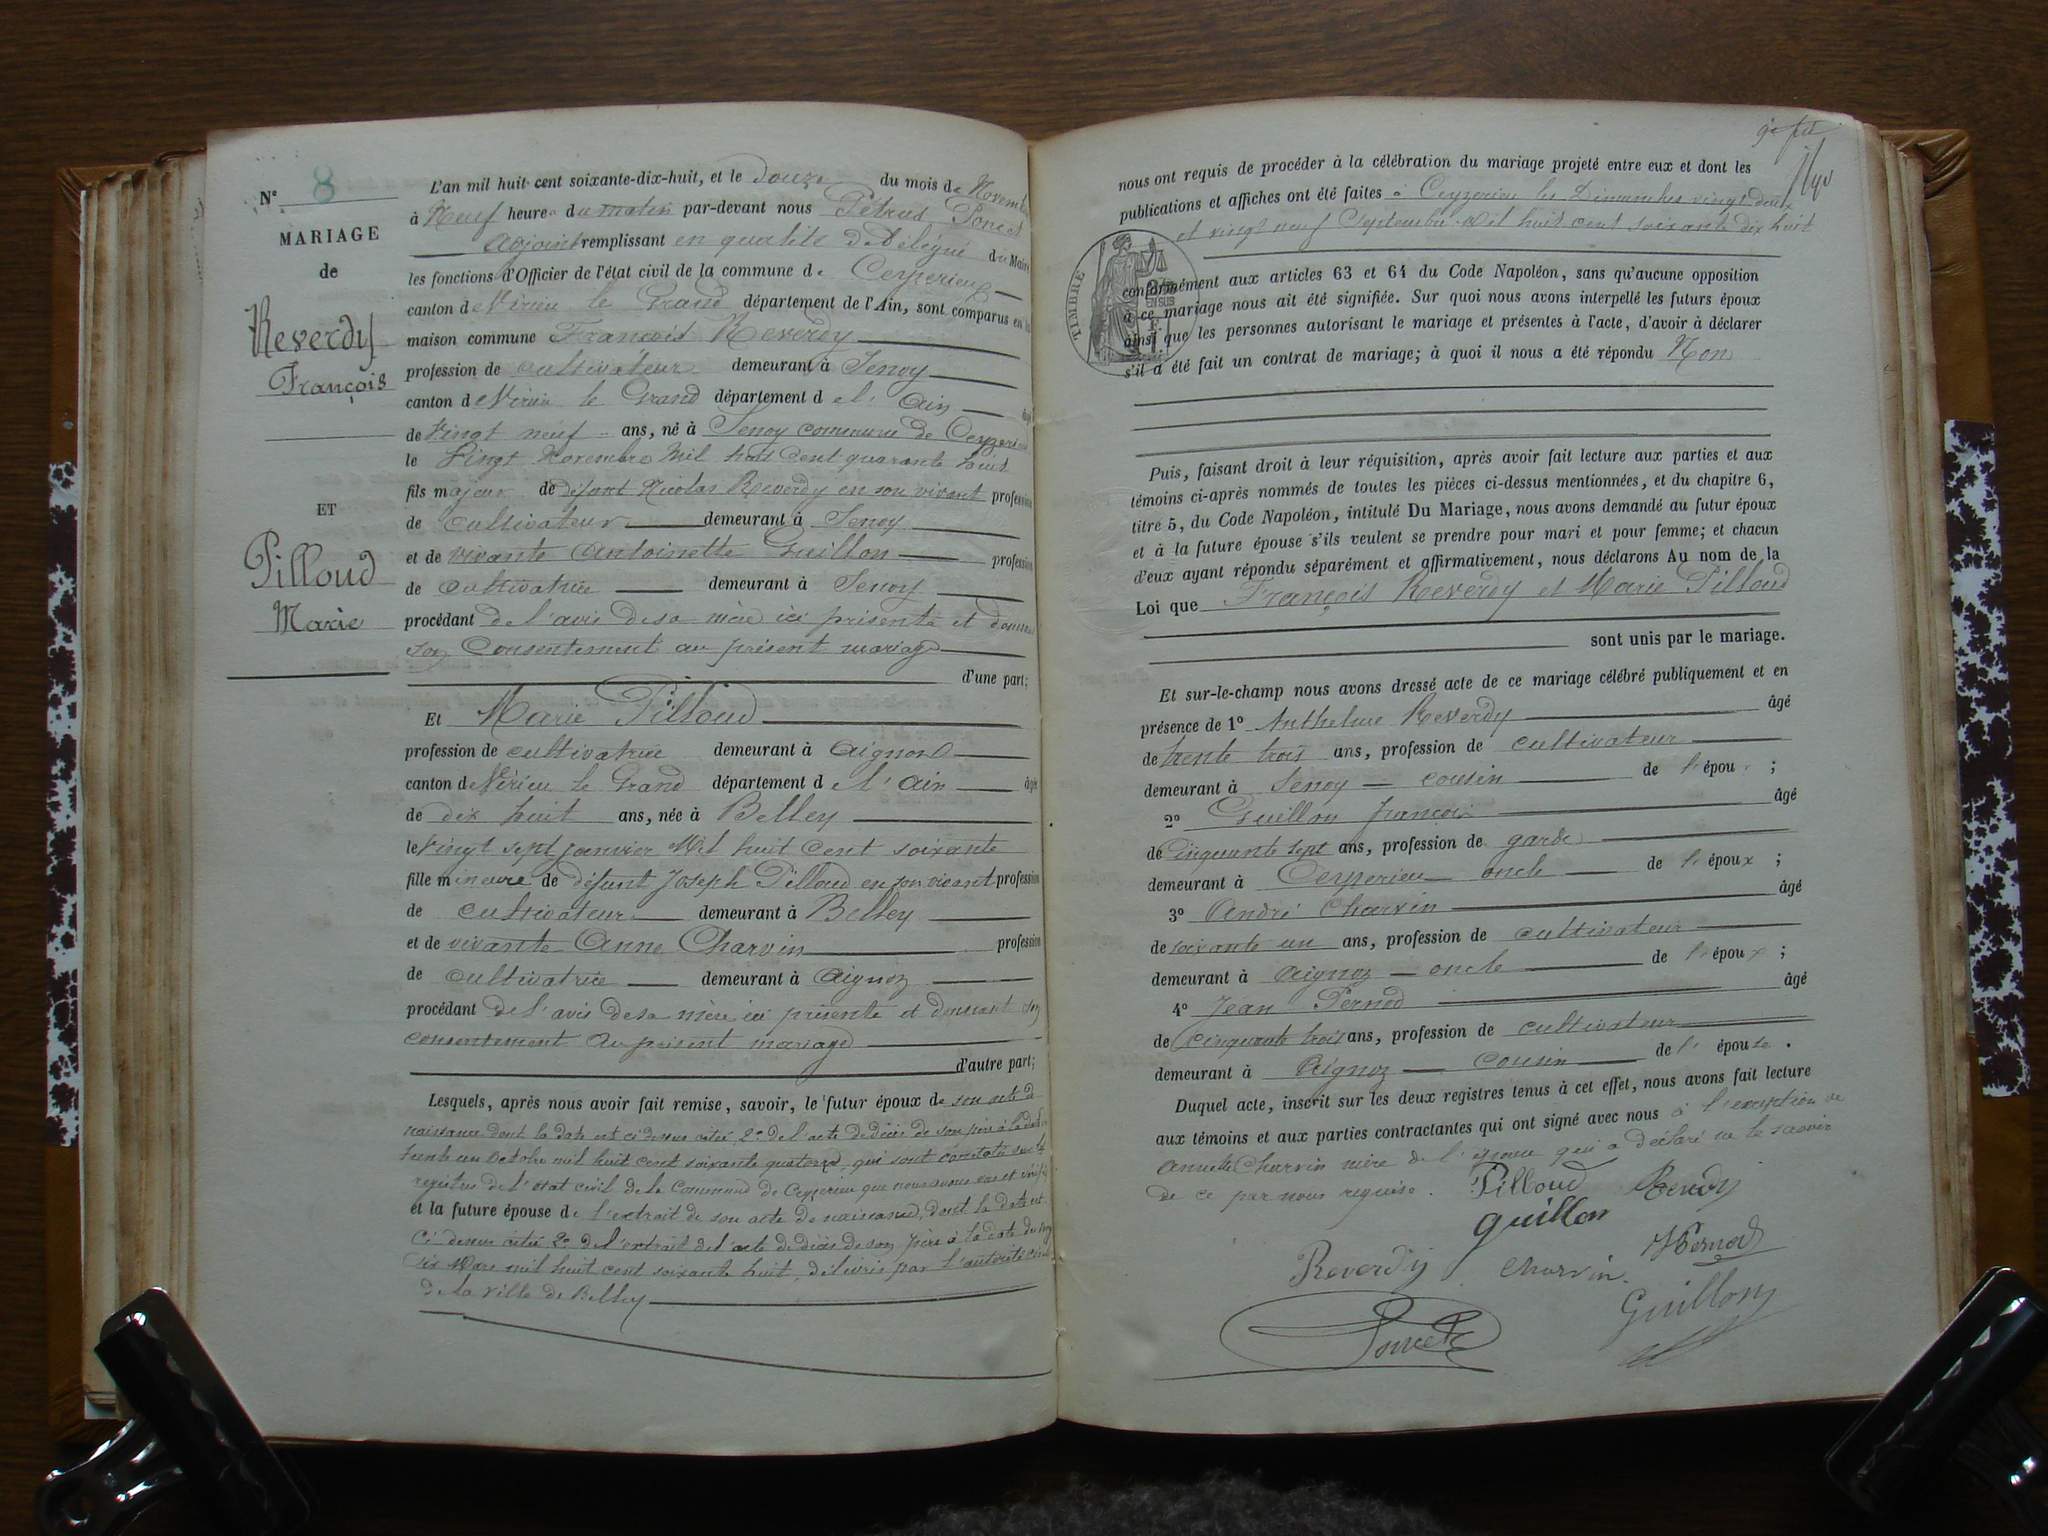 N° 8
MARIAGE
de
Reverdy
François
ET
Pilloud
Marie
L'an mil huit cent soixante-dix-huit, et le Douze du mois de Novembre
à Neuf heures du matin par-devant nous Pétrus Poncet
Adjoint remplissant en qualité de Délégué du Maire
les fonctions d'Officier de l'état civil de la commune de Ceyzerieux
canton de Virieu le Grand département de l'Ain, sont comparus en la
maison commune François Reverdy
profession de cultivateur demeurant à Senoy
canton de Virieu le Grand département de l'Ain âgé
de Vingt neuf ans, né à Senoy commune de Ceyzerieu
le Vingt Novembre Mil huit cent quarante huit
fils majeur de défunt Nicolas Reverdy en son vivant profession
de cultivateur demeurant à Senoy
et de vivante Antoinette Guillon profession
de cultivatrice demeurant à Senoy
procédant de l'avis de sa mère ici présente et donnant
son Consentement au présent mariage
d'une part;
Et Marie Pilloud
profession de cultivatrice demeurant à Aignoz
canton de Virieu le Grand département de l'Ain âgée
de dix huit ans, née à Belley
le Vingt sept Janvier Mil huit cent soixante
fille mineure de défunt Joseph Pilloud en son vivant profession
de cultivateur demeurant à Belley
et de vivante Anne Charvin profession
de cultivatrice demeurant à Aignoz
procédant de l'avis de sa mère ici présente et donnant son
consentement au présent mariage
d'autre part;
Lesquels, après nous avoir fait remise, savoir, le futur époux de son acte de
naissance dont la date est ci dessus citée 2° de l'acte de décès de son père à la date du
trente un Octobre mil huit cent soixante quatorze, qui sont constatés sur les
registres de l'état civil de la Commune de Ceyzerieu que nous avons vus et vérifiés
et la future épouse de l'extrait de son acte de naissance, dont la date est
ci dessus citée 2° de l'extrait de l'acte de décès de son père à la date du vingt
six Mars mil huit cent soixante huit, délivrés par l'autorité civile
de la ville de Belley
nous ont requis de procéder à la célébration du mariage projeté entre eux et dont les
publications et affiches ont été faites à Ceyzerieu les Dimanches vingt deux
et vingt neuf Septembre Mil huit cent soixante dix huit
TIMBRE
conformément aux articles 63 et 64 du Code Napoléon, sans qu'aucune opposition
à ce mariage nous ait été signifiée. Sur quoi nous avons interpellé les futurs époux
ainsi que les personnes autorisant le mariage et présentes à l'acte, d'avoir à déclarer
s'il a été fait un contrat de mariage; à quoi il nous a été répondu Non
Puis, faisant droit à leur réquisition, après avoir fait lecture aux parties et aux
témoins ci-après nommés de toutes les pièces ci-dessus mentionnées, et du chapitre 6,
titre 5, du Code Napoléon, intitulé Du Mariage, nous avons demandé au futur époux
et à la future épouse s'ils veulent se prendre pour mari et pour femme; et chacun
d'eux ayant répondu séparément et affirmativement, nous déclarons Au nom de la
Loi que François Reverdy et Marie Pilloud
sont unis par le mariage.
Et sur-le-champ nous avons dressé acte de ce mariage célébré publiquement et en
présence de 1° Anthelme Reverdy âgé
de trente trois ans, profession de cultivateur
demeurant à Senoy cousin de l'épou ;
2° Guillon François âgé
de Cinquante sept ans, profession de garde
demeurant à Ceyzerieu oncle de l'époux ;
3° André Charvin âgé
de soixante un ans, profession de cultivateur
demeurant à Aignoz oncle de l'époux ;
4° Jean Pernod âgé
de Cinquante trois ans, profession de cultivateur
demeurant à Aignoz cousin de l' épouse .
Duquel acte, inscrit sur les deux registres tenus à cet effet, nous avons fait lecture
aux témoins et aux parties contractantes qui ont signé avec nous à l'exception de
Charvin mère de l'épouse qui a déclaré ne le savoir
de ce par nous requise.
Pilloud Reverdy
guillon
Pernod
Reverdy Charvin
Guillon
Poncet